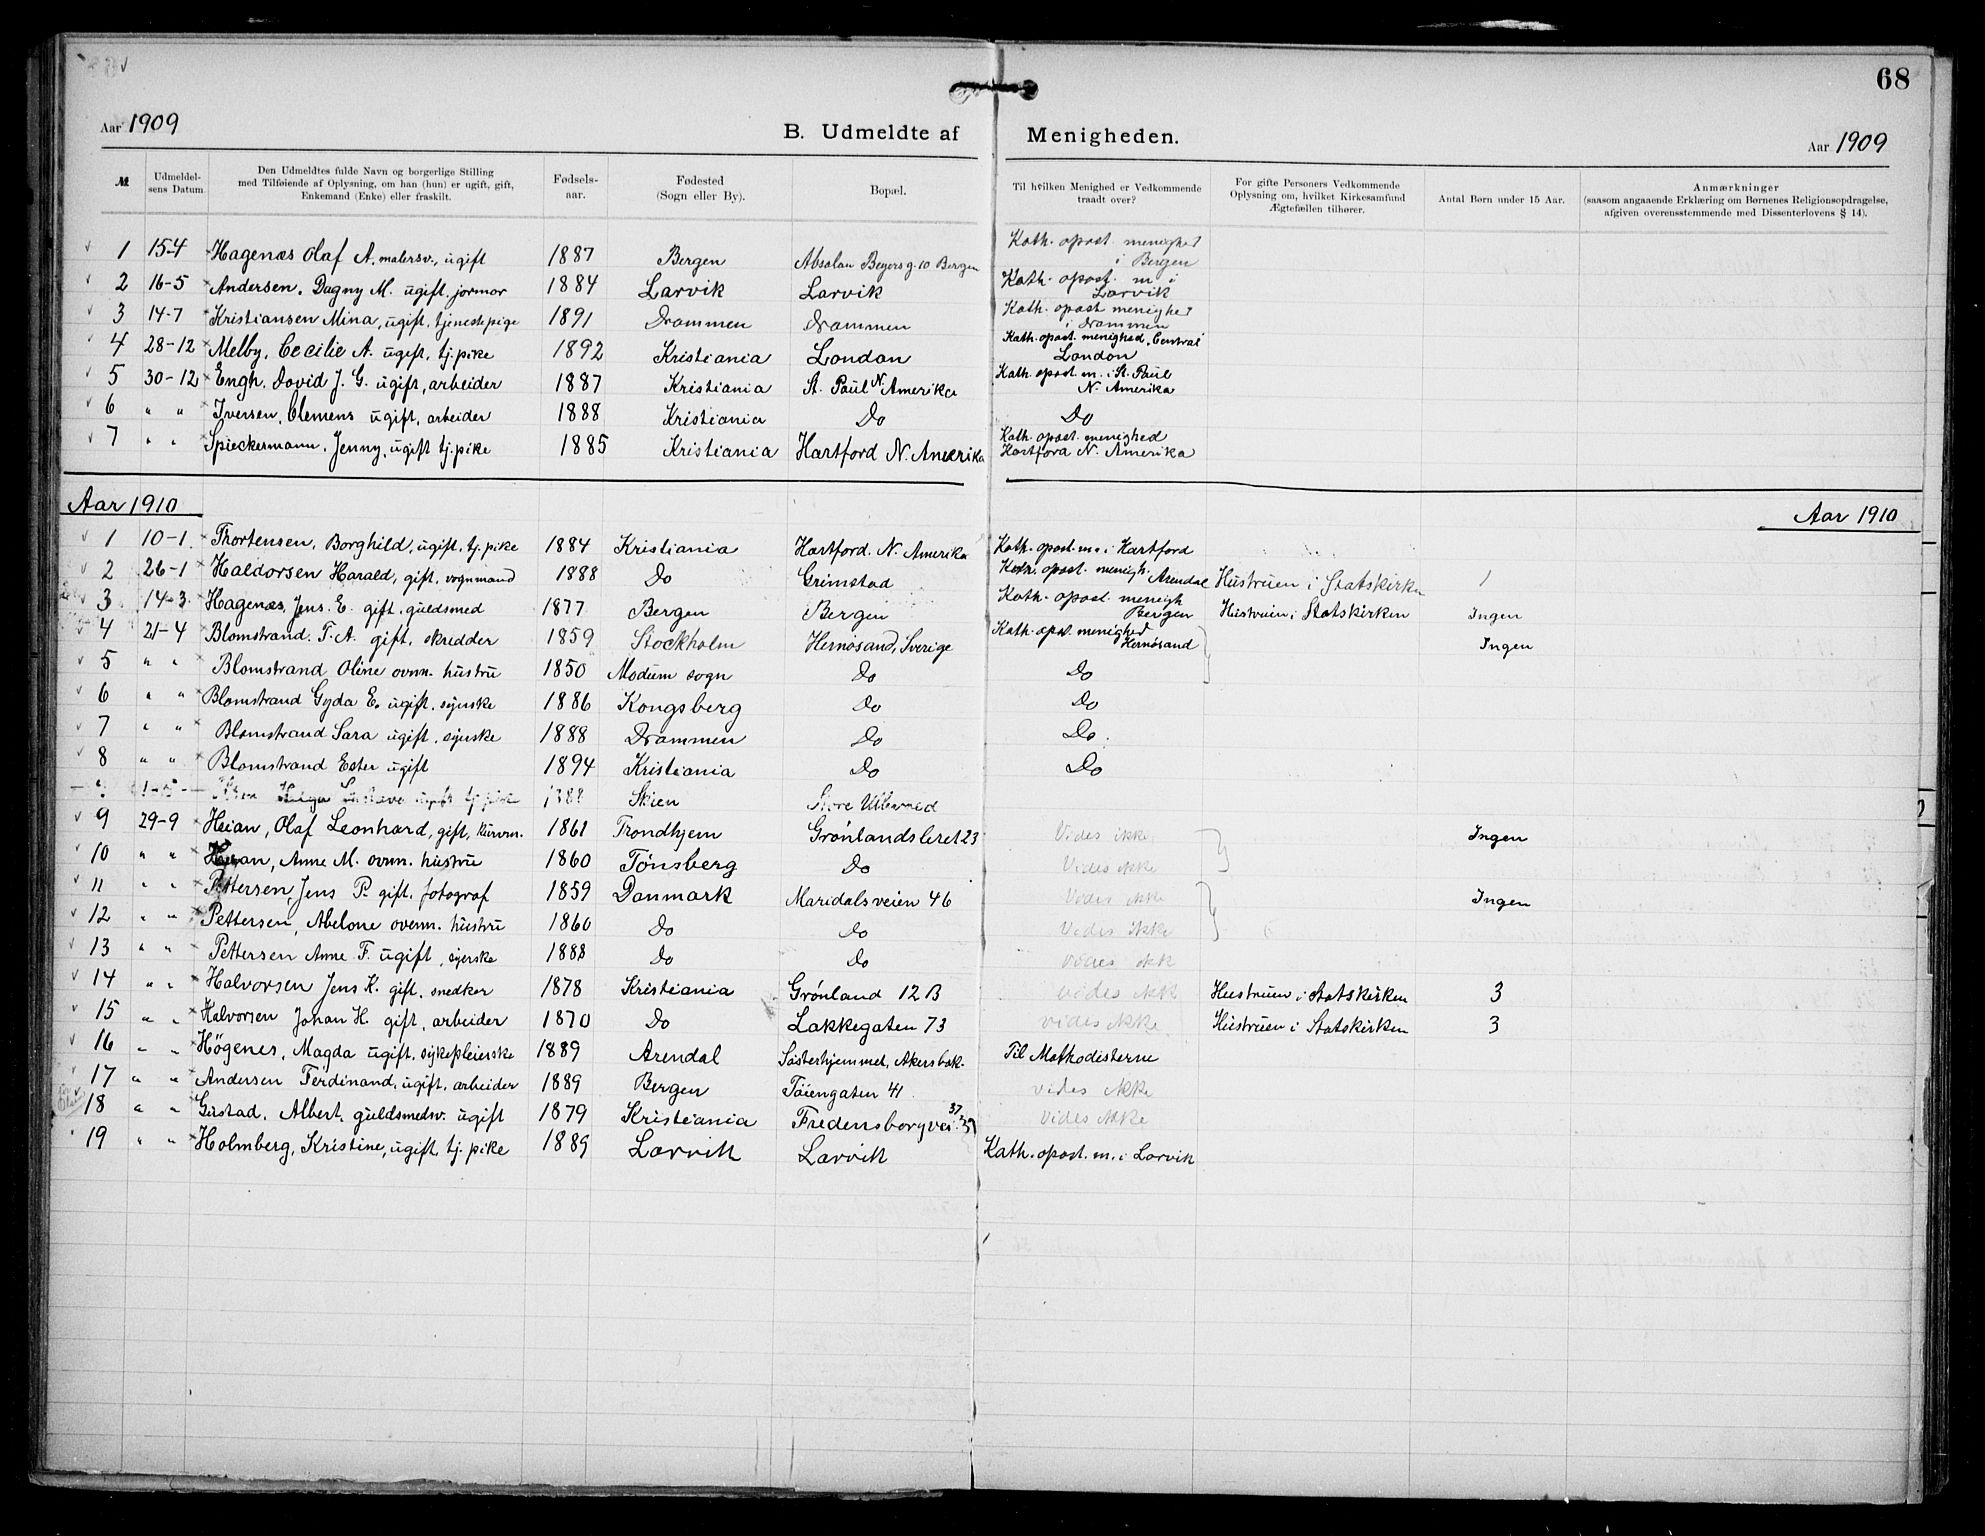 68
Aar 1909
B. Udmeldte af Menigheden.
Aar 1909
№ Udmeldelsens Datum. Den Udmeldtes fulde Navn og borgerlige Stilling med Tilføiende af Oplysning, om han (hun) er ugift, gift, Enkemand (Enke) eller fraskilt. Fødselsaar. Fødested (Sogn eller By). Bopæl. Til hvilken Menighed er Vedkommende traadt over? For gifte Personers Vedkommende Oplysning om, hvilket Kirkesamfund Ægtefællen tilhører. Antal Børn under 15 Aar. Anmærkninger (saasom angaaende Erklæring om Børnenes Religionsopdragelse, afgiven overensstemmende med Dissenterlovens § 14).
1 15-4 Hagenæs Olaf A. malersv., ugift 1887 Bergen Absalon Beyersg. 10 Bergen Kath. apost. menighet i Bergen
2 16-5 Andersen, Dagny M. ugift, jormor 1884 Larvik Larvik Kath. apost. m i Larvik
3 14-7 Kristiansen Mina, ugift, tjenestpige 1891 Drammen Drammen Kath. apost menighet i Drammen
4 28-12 Melby, Cecilie A. ugift, tj. pike 1892 Kristiania London Kath. apost. menighed, Central London
5 30-12 Engh, David J. G. ugift, arbeider 1887 Kristiania St. Paul N. Amerika Kath. apost. m. i St. Paul N. Amerika
6 " " Iversen, Clemens ugift, arbeider 1888 Kristiania Do Do
7 " " Spieckermann, Jenny, ugift tj. pike 1885 Kristiania Hartford N. Amerika Kath. apost. menighed Hartford N. Amerika
Aar 1910 Aar 1910
1 10-1 Thortensen, Borghild, ugift, tj. pike 1884 Kristiania Hartford. N. Amerika Kath. apost. m. i Hartford
2 26-1 Haldorsen Harald, gift, vognmand 1888 Do Grimstad Kath. apost. menigh. Arendal Hustruen i Statskirken 1
3 14-3 Hagenæs, Jens. E. gift, guldsmed 1877 Bergen Bergen Kath. apost. menigh Bergen Hustruen i Statskirken Ingen
4 21-4 Blomstrand. F. A. gift, skredder 1859 Stockholm Hernösand, Sverige Kath. apos. menighed Hernösand Ingen
5 " " Blomstrand Oline ovnn. hustru 1850 Modum sogn Do Do
6 " " Blomstrand Gyda E. ugift. syerske 1886 Kongsberg Do Do
7 " " Blomstrand Sara ugift, syerske 1888 Drammen Do Do
8 " " Blomstrand Ester ugift 1894 Kristiania Do Do
1888 Skien
9 29-9 Heian, Olaf Leonhard, gift, kurvm. 1861 Trondhjem Grønlandsleret 23 Vides ikke Ingen
10 " " Heian, Anne M. ovnn. hustru 1860 Tønsberg Do Vides ikke
11 " " Pettersen, Jens P. gift, fotograf 1859 Danmark Maridalsveien 46 Vides ikke Ingen
12 " " Pettersen, Abelone ovenn. hustru 1860 Do Do Vides ikke
13 " " Pettersen Anne F. ugift, syerske 1888 Do Do vides ikk
14 " " Halvorsen Jens K. gift, snedker 1878 Kristiania Grønland 12 B vides ikk Hustruen i Statskirken 3
15 " " Halvorsen Johan H. gift, arbeider 1870 Do Lakkegaten 73 vides ikke Hustruen i Statskirken 3
16 " " Högenes, Magda ugift, sykepleierske 1889 Arendal Søsterhjemmet, Akersbak. Til Methodisterne
17 " " Andersen Ferdinand, ugift, arbeider 1889 Bergen Tøiengaten 41 vides ikke
18 " " Gustad, Albert, guldsmedsv. ugift 1879 Kristiania Fredensborgvei. 37 vides ikke
19 " " Holmberg, Kristine, ugift, tj. pike 1889 Larvik Larvik Kath. apost. m. i Larvik